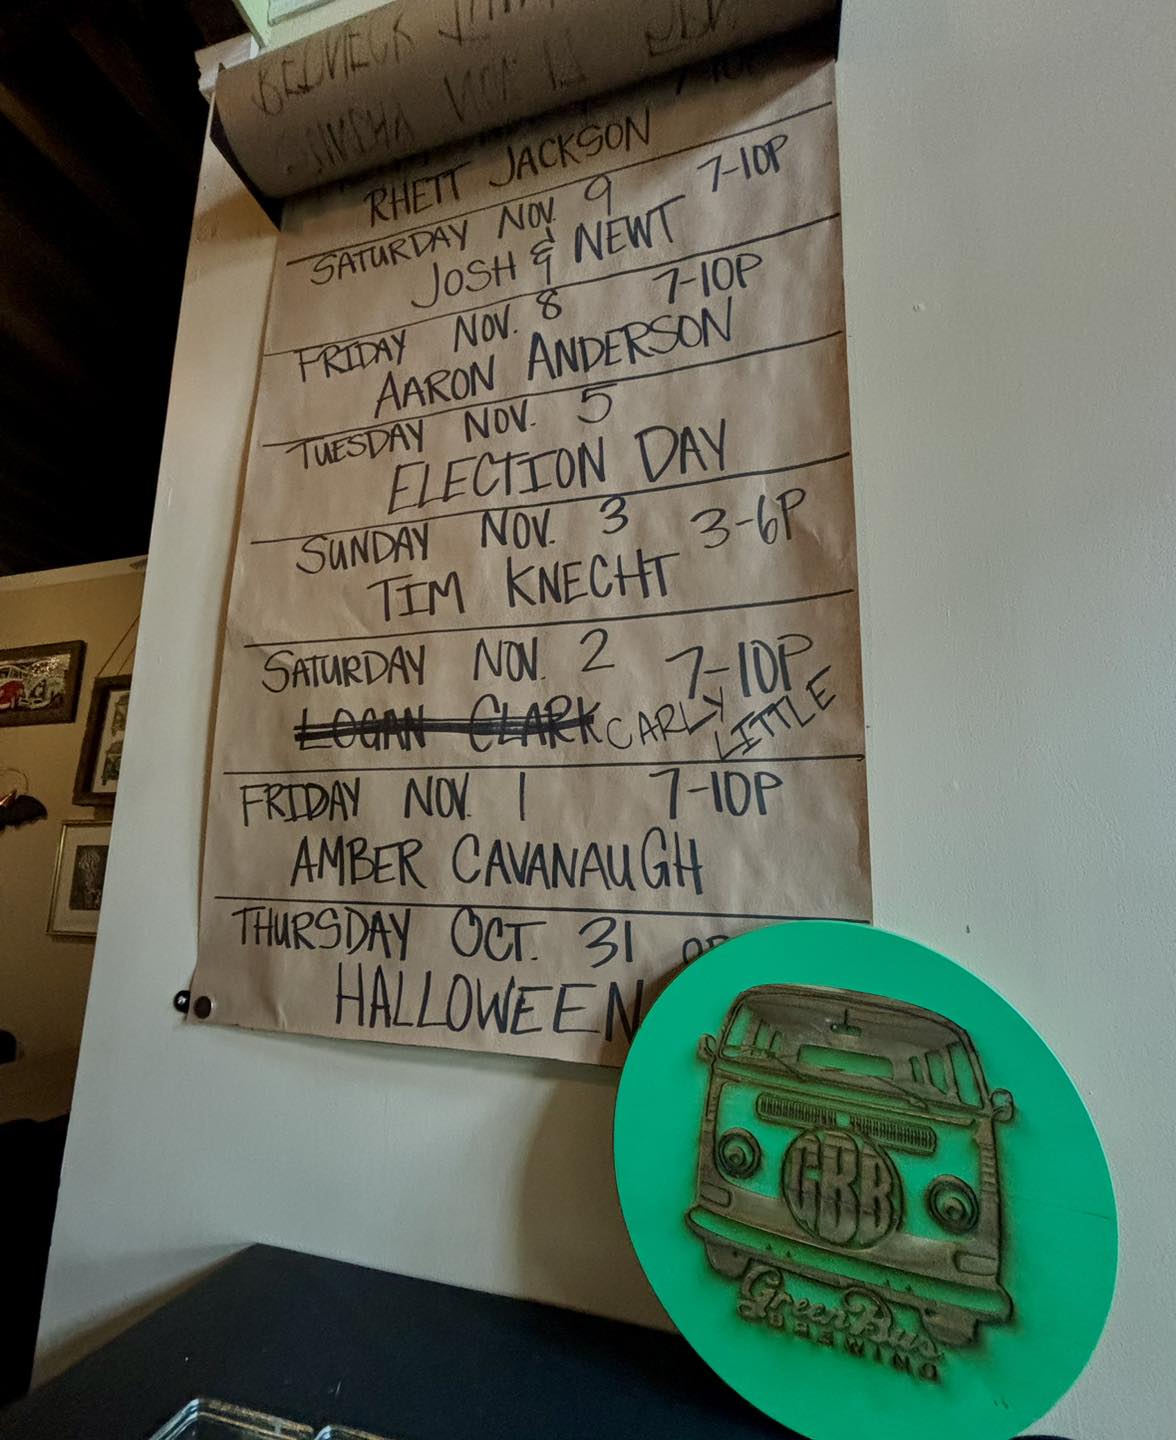 RHETT JACKSON
SATURDAY NOV. 9 7-10P
JOSH & NEWT
FRIDAY NOV. 8 7-10P
AARON ANDERSON
TUESDAY NOV. 5
ELECTION DAY
SUNDAY NOV. 3 3-6P
TIM KNECHT
SATURDAY NOV. 2 7-10P
LOGAN CLARK CARLY LITTLE
FRIDAY NOV. 1 7-10P
AMBER CAVANAUGH
THURSDAY OCT. 31
HALLOWEEN
GBB
Green Bus
BREWING